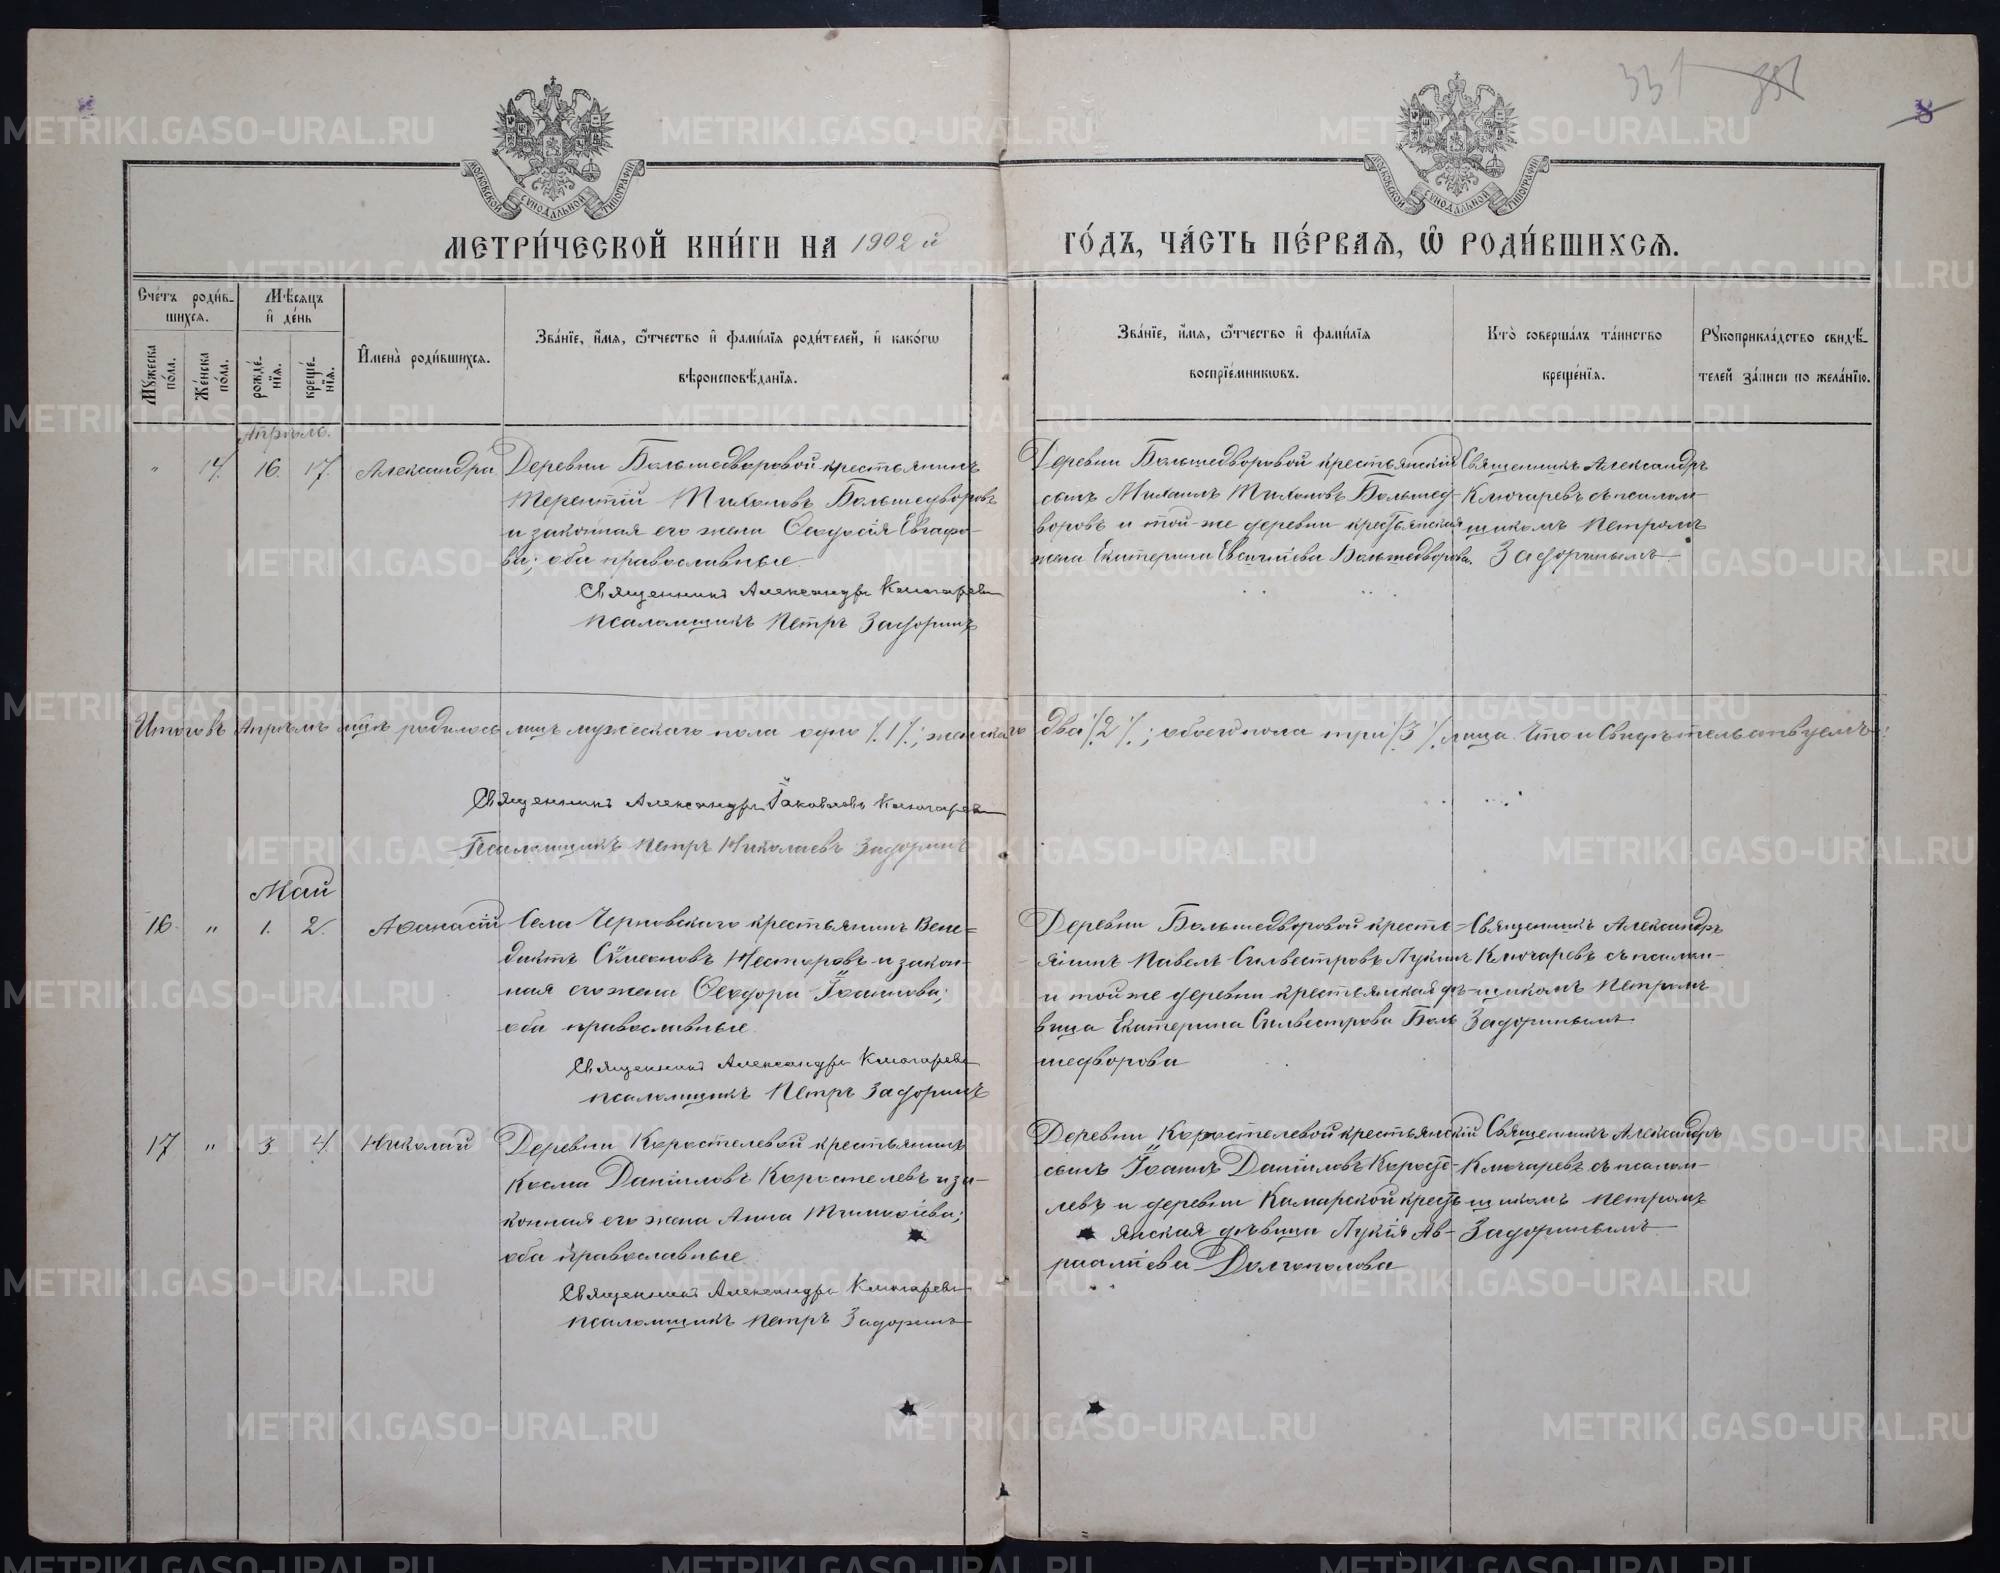 331 331
8
МОСКОВСКОЙ СУНОДАЛЬНОЙ ТИПОГРАФІИ
МОСКОВСКОЙ СУНОДАЛЬНОЙ ТИПОГРАФІИ
МЕТРИ́ЧЕСКОЙ КНИ́ГИ НА 1902 й
ГО́ДЪ, ЧА́СТЬ ПЕ́РВАѦ, Ѡ РОДИ́ВШИХСѦ.
Сче́тъ роди́в-
шихсѧ.
Мѣ́сѧцъ
и҆ де́нь
Мꙋ́жеска
по́ла.
Же́нска
по́ла.
рожде́-
нїѧ.
креще́-
нїѧ.
И҆мена̀ роди́вшихсѧ.
Зва́нїе, и҆́мѧ, ѻ҆́тчество и҆ фами́лїѧ роди́телей, и҆ како́гѡ
вѣроисповѣ́данїѧ.
Зва́нїе, и҆́мѧ, ѻ҆́тчество и҆ фами́лїѧ
воспрїе́мникѡвъ.
Кто̀ соверша́лъ та́инство
креще́нїѧ.
Рꙋкоприкла́дство свидѣ́-
телей за́писи по жела́нїю.
Апрѣль.
" 14. 16. 17. Александра
Деревни Большедворовой крестьянинъ
Терентій Тихоновъ Большедворовъ
и законная его жена Ѳеодосія Евграфо-
ва; оба православные.
Священникъ Александръ Ключаревъ
псаломщикъ Петръ Задоринъ
Деревни Большедворовой крестьянскій
сынъ Михаилъ Тихоновъ Большед-
воровъ и той-же деревни крестьянская
жена Екатерина Евсигніева Большедворова.
Священникъ Александръ
Ключаревъ съ псалом-
щикомъ Петромъ
Задоринымъ
Итого въ Апрѣлѣ мцѣ родилось лицъ мужескаго пола одно /.1/.; женскаго два /.2/.; обоего пола три /.3/. лица. Что и Свидѣтельствуемъ:
Священникъ Александръ Іаковлевъ Ключаревъ
Псаломщикъ Петръ Николаевъ Задоринъ
Май
16. " 1. 2. Аѳанасій
Села Черновскаго крестьянинъ Вене=
диктъ Сѵмеоновъ Нестеровъ и закон-
ная его жена Ѳеодора Іоаннова;
оба православные.
Священникъ Александръ Ключаревъ
псаломщикъ Петръ Задоринъ
Деревни Большедворовой кресть=
янинъ Павелъ Сильвестровъ Лукинъ
и той же деревни крестьянская дѣ-
вица Екатерина Сильвестрова Боль
шедворова
Священникъ Александръ
Ключаревъ съ псалом-
щикомъ Петромъ
Задоринымъ
17 " 3 4. Николай
Деревни Коростелевой крестьянинъ
Косма Даніиловъ Коростелевъ и за-
конная его жена Анна Тимоѳіева;
оба православные
Священникъ Александръ Ключаревъ
псаломщикъ Петръ Задоринъ
Деревни Коростелевой крестьянскій
сынъ Іоаннъ Даніиловъ Коросте-
левъ и деревни Камарской кресть
янская дѣвица Лукія Ав-
рааміева Долгополова
Священникъ Александръ
Ключаревъ съ псалом-
щикомъ Петромъ
Задоринымъ
METRIKI.GASO-URAL.RU